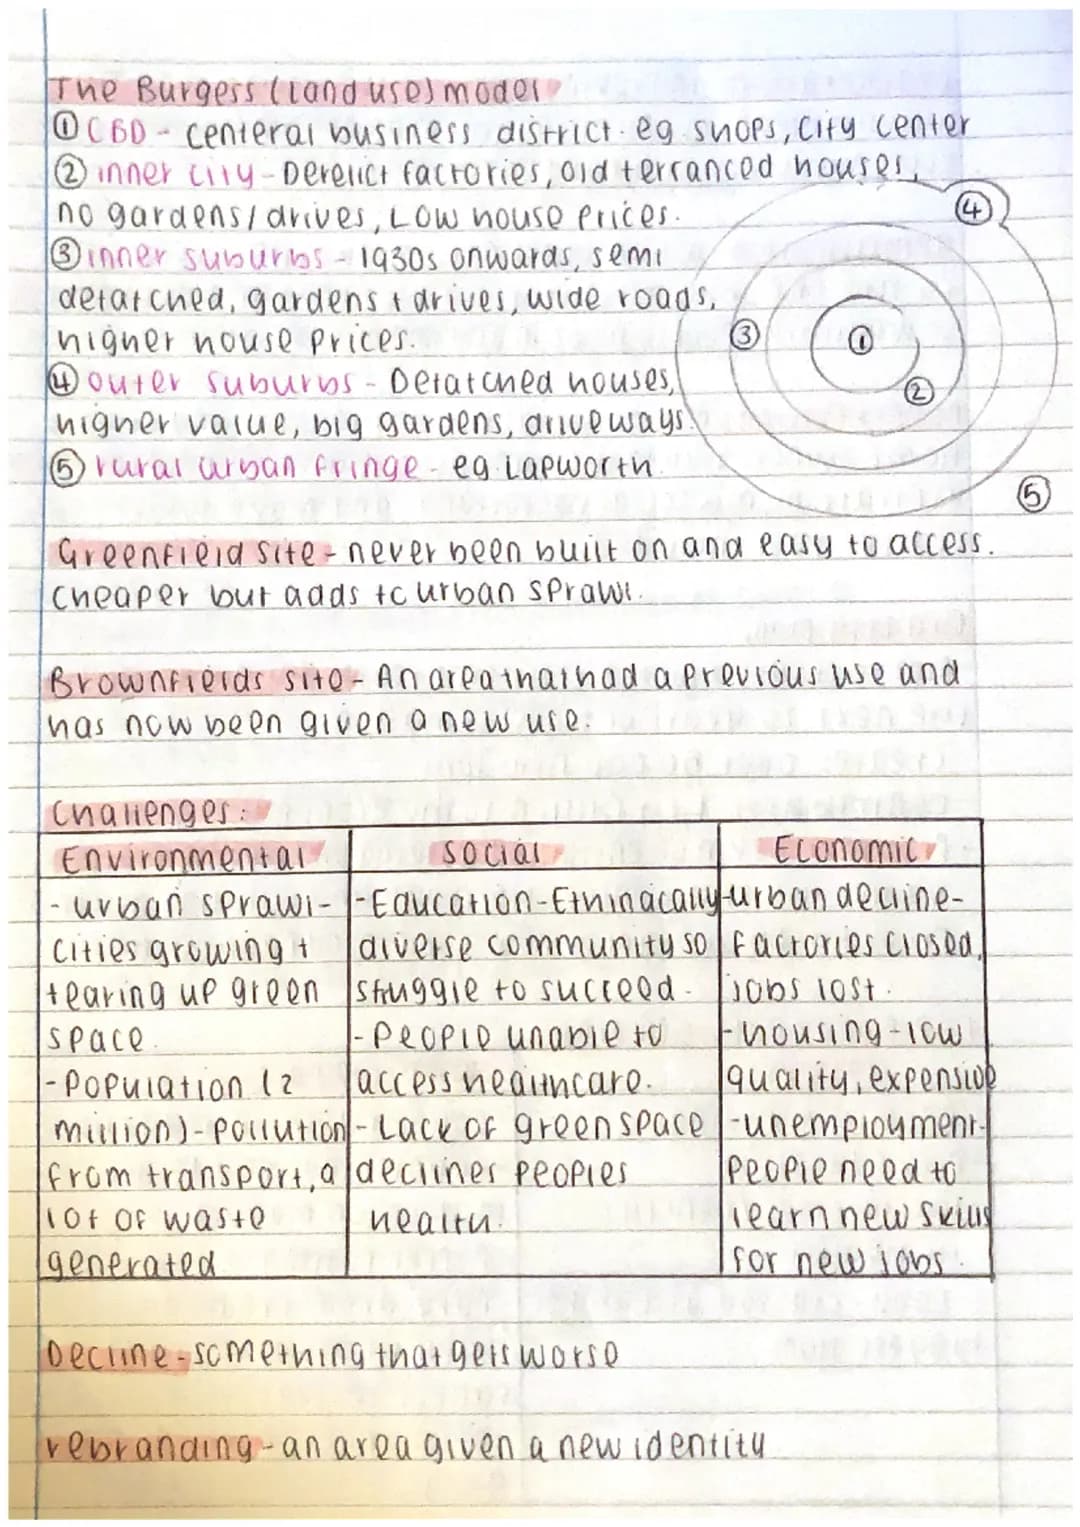 The Burgess (land use) model
① CBD - centeral business district. eg. shops, city center
② inner city - Derelict factories, old terranced houses,
no gardens/drives, Low house prices.
③ inner suburbs - 1930s onwards, semi
detatched, gardens + drives, wide roads,
higher house prices.
④ outer suburbs - Detatched houses,
higher value, big gardens, driveways.
⑤ rural urban fringe - eg. Lapworth.
①
②
③
④
⑤
Greenfield site - never been built on and easy to access.
Cheaper but adds to urban sprawl.
Brownfields site - An area that had a previous use and
has now been given a new use.
Challenges:
Environmental
- urban sprawl -
cities growing +
tearing up green
space.
- Population (2
million) - pollution
from transport, a
lot of waste
generated
social
- Education - Ethinacally
diverse community so
struggle to succeed.
- People unable to
access healthcare.
- Lack of green space
declines peoples
health.
Economic
- urban decline -
factories closed,
jobs lost.
- housing - low
quality, expensive
- unemployment -
people need to
learn new skills
for new jobs.
Decline - something that gets worse
rebranding - an area given a new identity